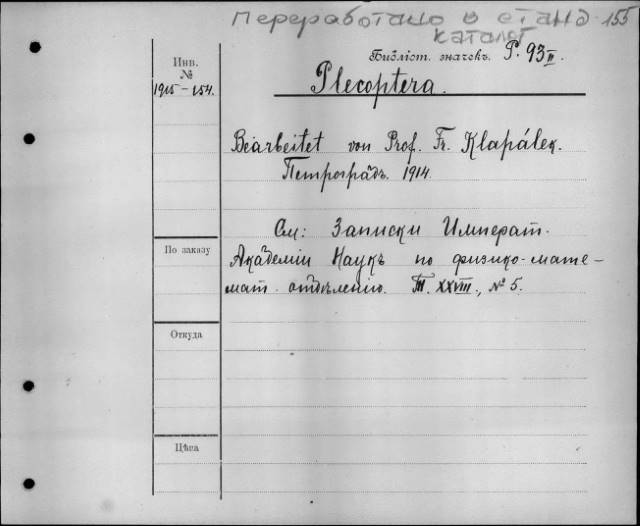 Переработано в станд 155
каталог
Библіот. значекъ. P. 93 II.
Инв.
№
1915-154.
Plecoptera.
Bearbeitet von Prof. Fr. Klapálek.
Петроградъ. 1914.
См: Записки Императ.
По заказу
Академіи Наукъ по физико-мате-
мат. отдѣленію. Т. XXVIII, № 5.
Откуда
Цѣна